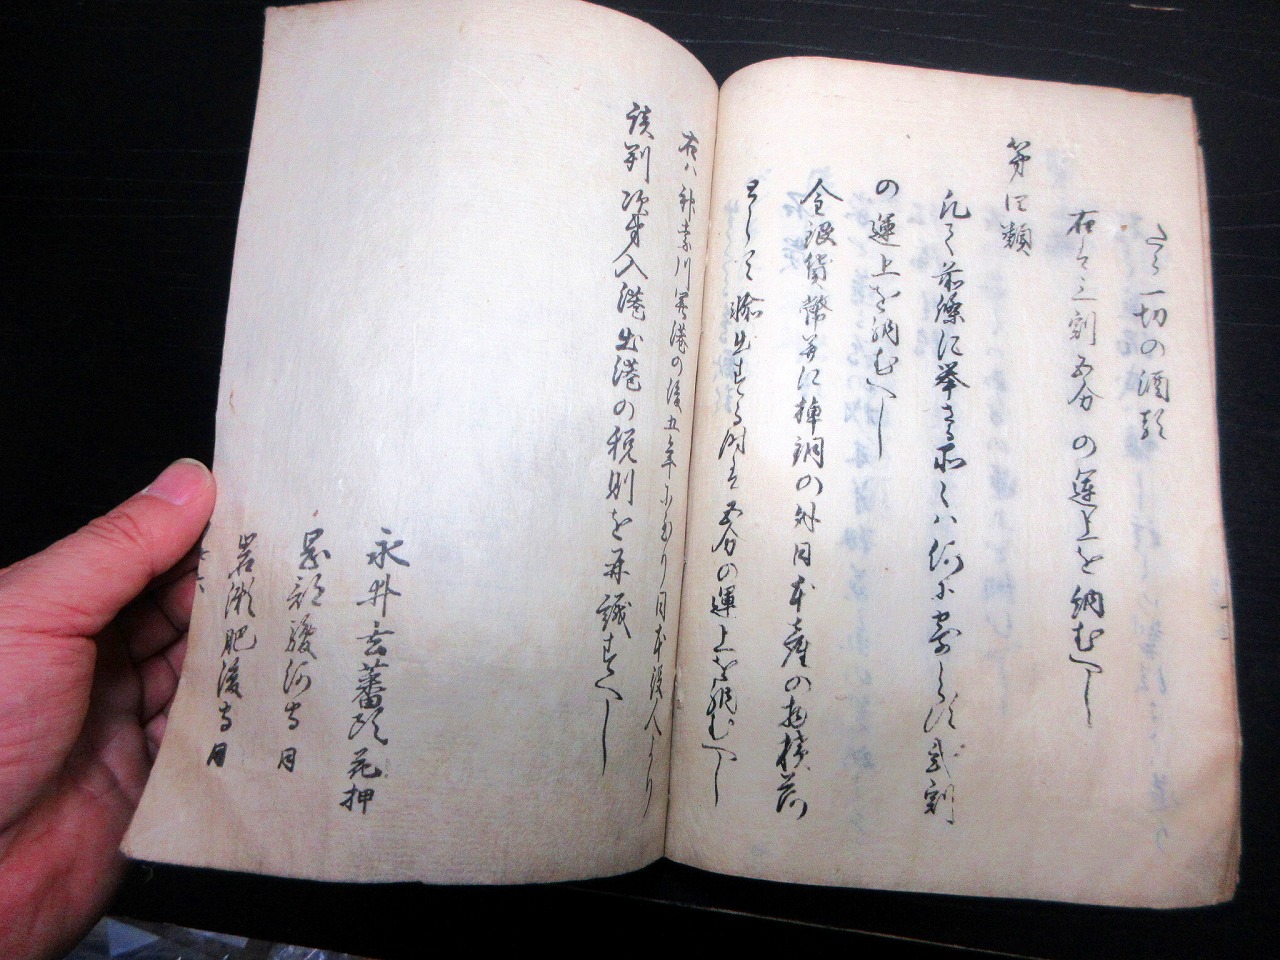 たる一切の酒類
右は三割五分の運上を納むへし
第四類
凡て前條に挙さる所之ハ何に寄らす弐割
の運上を納むへし
金銀貨幣并に棹銅の外日本産の物積荷
として輸出する時は五分の運上を納むへし
右ハ神奈川開港の後五年に至り日本役人より
談判次第入港出港の税則を再議すへし
永井玄蕃頭花押
岡部駿河守同
岩瀬肥後守同